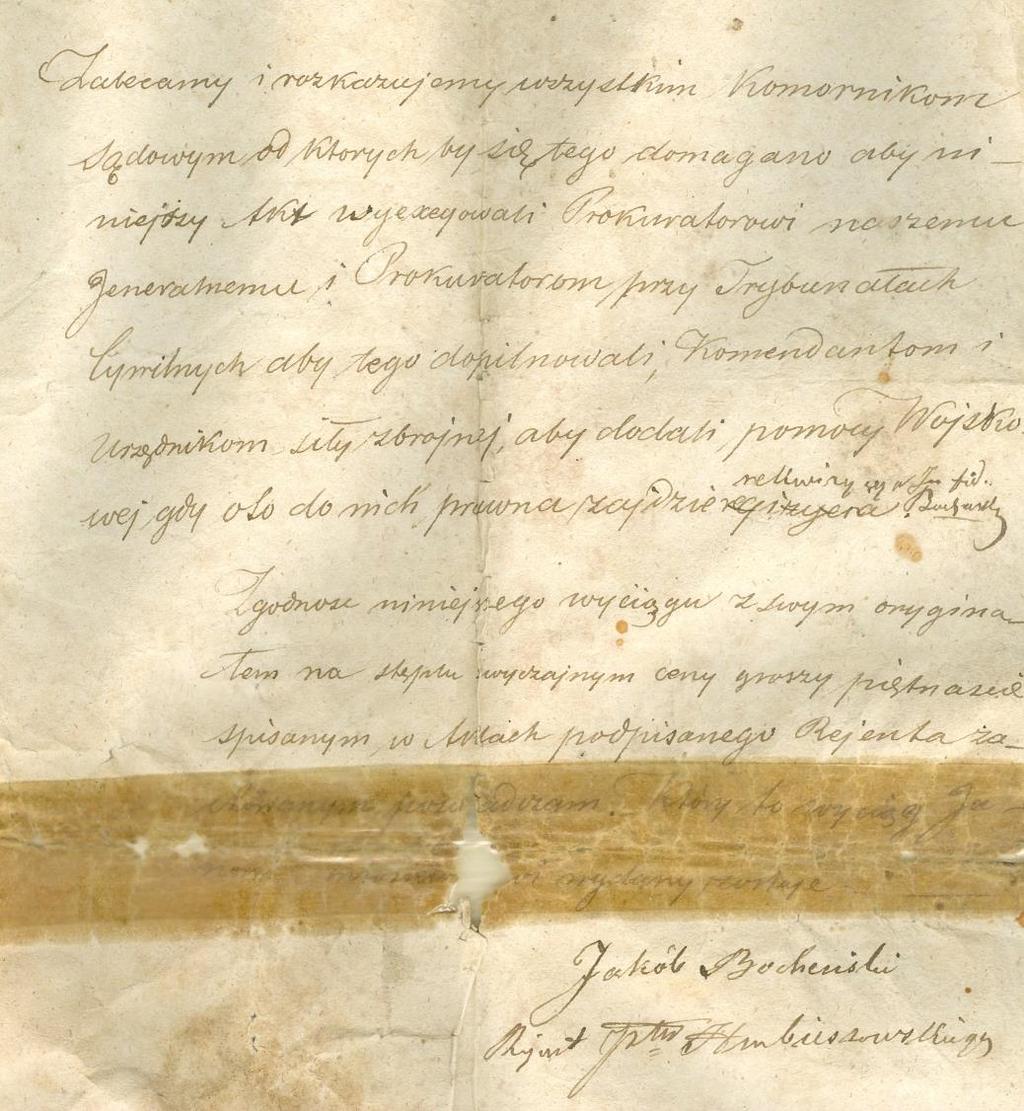 Zalecamy i rozkazujemy wszystkim Komornikom
Sądowym od ktorych by się tego domagano aby ni-
niejszy Akt wyexegowali Prokuratorowi naszemu
Jeneralnemu i Prokuratorom przy Trybunałach
Cywilnych aby tego dopilnowali, Komendantom i
Urzędnikom siły zbrojnej, aby dodali pomocy Wojsko-
wej gdy oto do nich prawna zajdzie
Zgodnosc niniejszego wyciągu z swym orygina-
łem na stęplu zwyczajnym ceny groszy piętnascie
spisanym w Aktach podpisanego Rejenta za-
chowanym poswiadczam. Który to wyciąg Ja-
wydany zostaje
Jakób Bocheński
Rejent Ptu Hrubieszowskiego